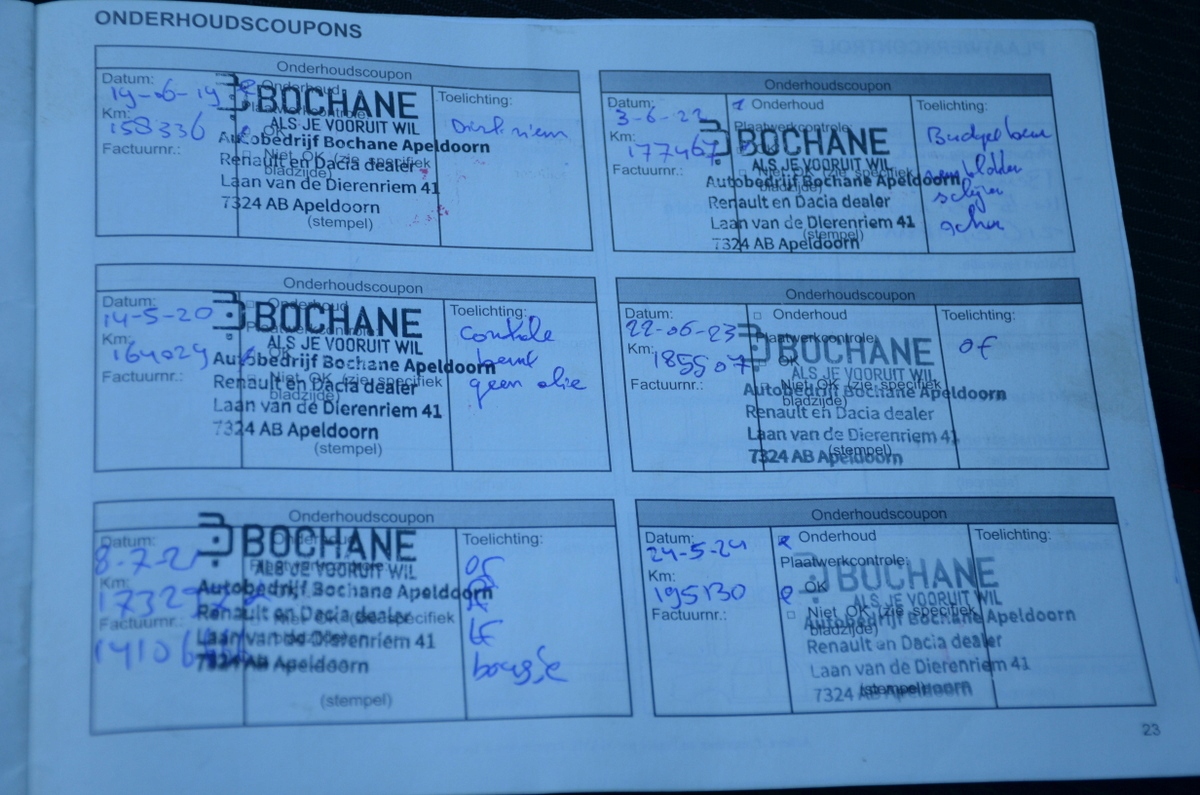 ONDERHOUDSCOUPONS
Onderhoudscoupon
Datum:
19-06-19
Onderhoud
Km:
158336
Plaatwerkcontrole:
OK
Factuurnr.:
Niet OK (zie specifiek
bladzijde)
BOCHANE
ALS JE VOORUIT WIL
Autobedrijf Bochane Apeldoorn
Renault en Dacia dealer
Laan van de Dierenriem 41
7324 AB Apeldoorn
(stempel)
Toelichting:
Onderhoudscoupon
Datum:
14-5-20
Onderhoud
Km:
164029
Plaatwerkcontrole:
OK
Factuurnr.:
Niet OK (zie specifiek
bladzijde)
BOCHANE
ALS JE VOORUIT WIL
Autobedrijf Bochane Apeldoorn
Renault en Dacia dealer
Laan van de Dierenriem 41
7324 AB Apeldoorn
(stempel)
Toelichting:
controle
beurt
geen olie
Onderhoudscoupon
Datum:
8-7-21
Km:
Factuurnr.:
BOCHANE
ALS JE VOORUIT WIL
Autobedrijf Bochane Apeldoorn
Renault en Dacia dealer
Laan van de Dierenriem 41
7324 AB Apeldoorn
(stempel)
Toelichting:
LF
bougie
Onderhoudscoupon
Datum:
3-6-22
Onderhoud
Km:
177467
Plaatwerkcontrole:
OK
Factuurnr.:
Niet OK (zie specifiek
bladzijde)
BOCHANE
ALS JE VOORUIT WIL
Autobedrijf Bochane Apeldoorn
Renault en Dacia dealer
Laan van de Dierenriem 41
7324 AB Apeldoorn
(stempel)
Toelichting:
schijven
Onderhoudscoupon
Datum:
22-06-23
Onderhoud
Km:
185507
Plaatwerkcontrole:
OK
Factuurnr.:
Niet OK (zie specifiek
bladzijde)
BOCHANE
ALS JE VOORUIT WIL
Autobedrijf Bochane Apeldoorn
Renault en Dacia dealer
Laan van de Dierenriem 41
7324 AB Apeldoorn
(stempel)
Toelichting:
OF
Onderhoudscoupon
Datum:
24-5-24
Onderhoud
Km:
195130
Plaatwerkcontrole:
OK
Factuurnr.:
Niet OK (zie specifiek
bladzijde)
BOCHANE
ALS JE VOORUIT WIL
Autobedrijf Bochane Apeldoorn
Renault en Dacia dealer
Laan van de Dierenriem 41
7324 AB Apeldoorn
(stempel)
Toelichting:
23